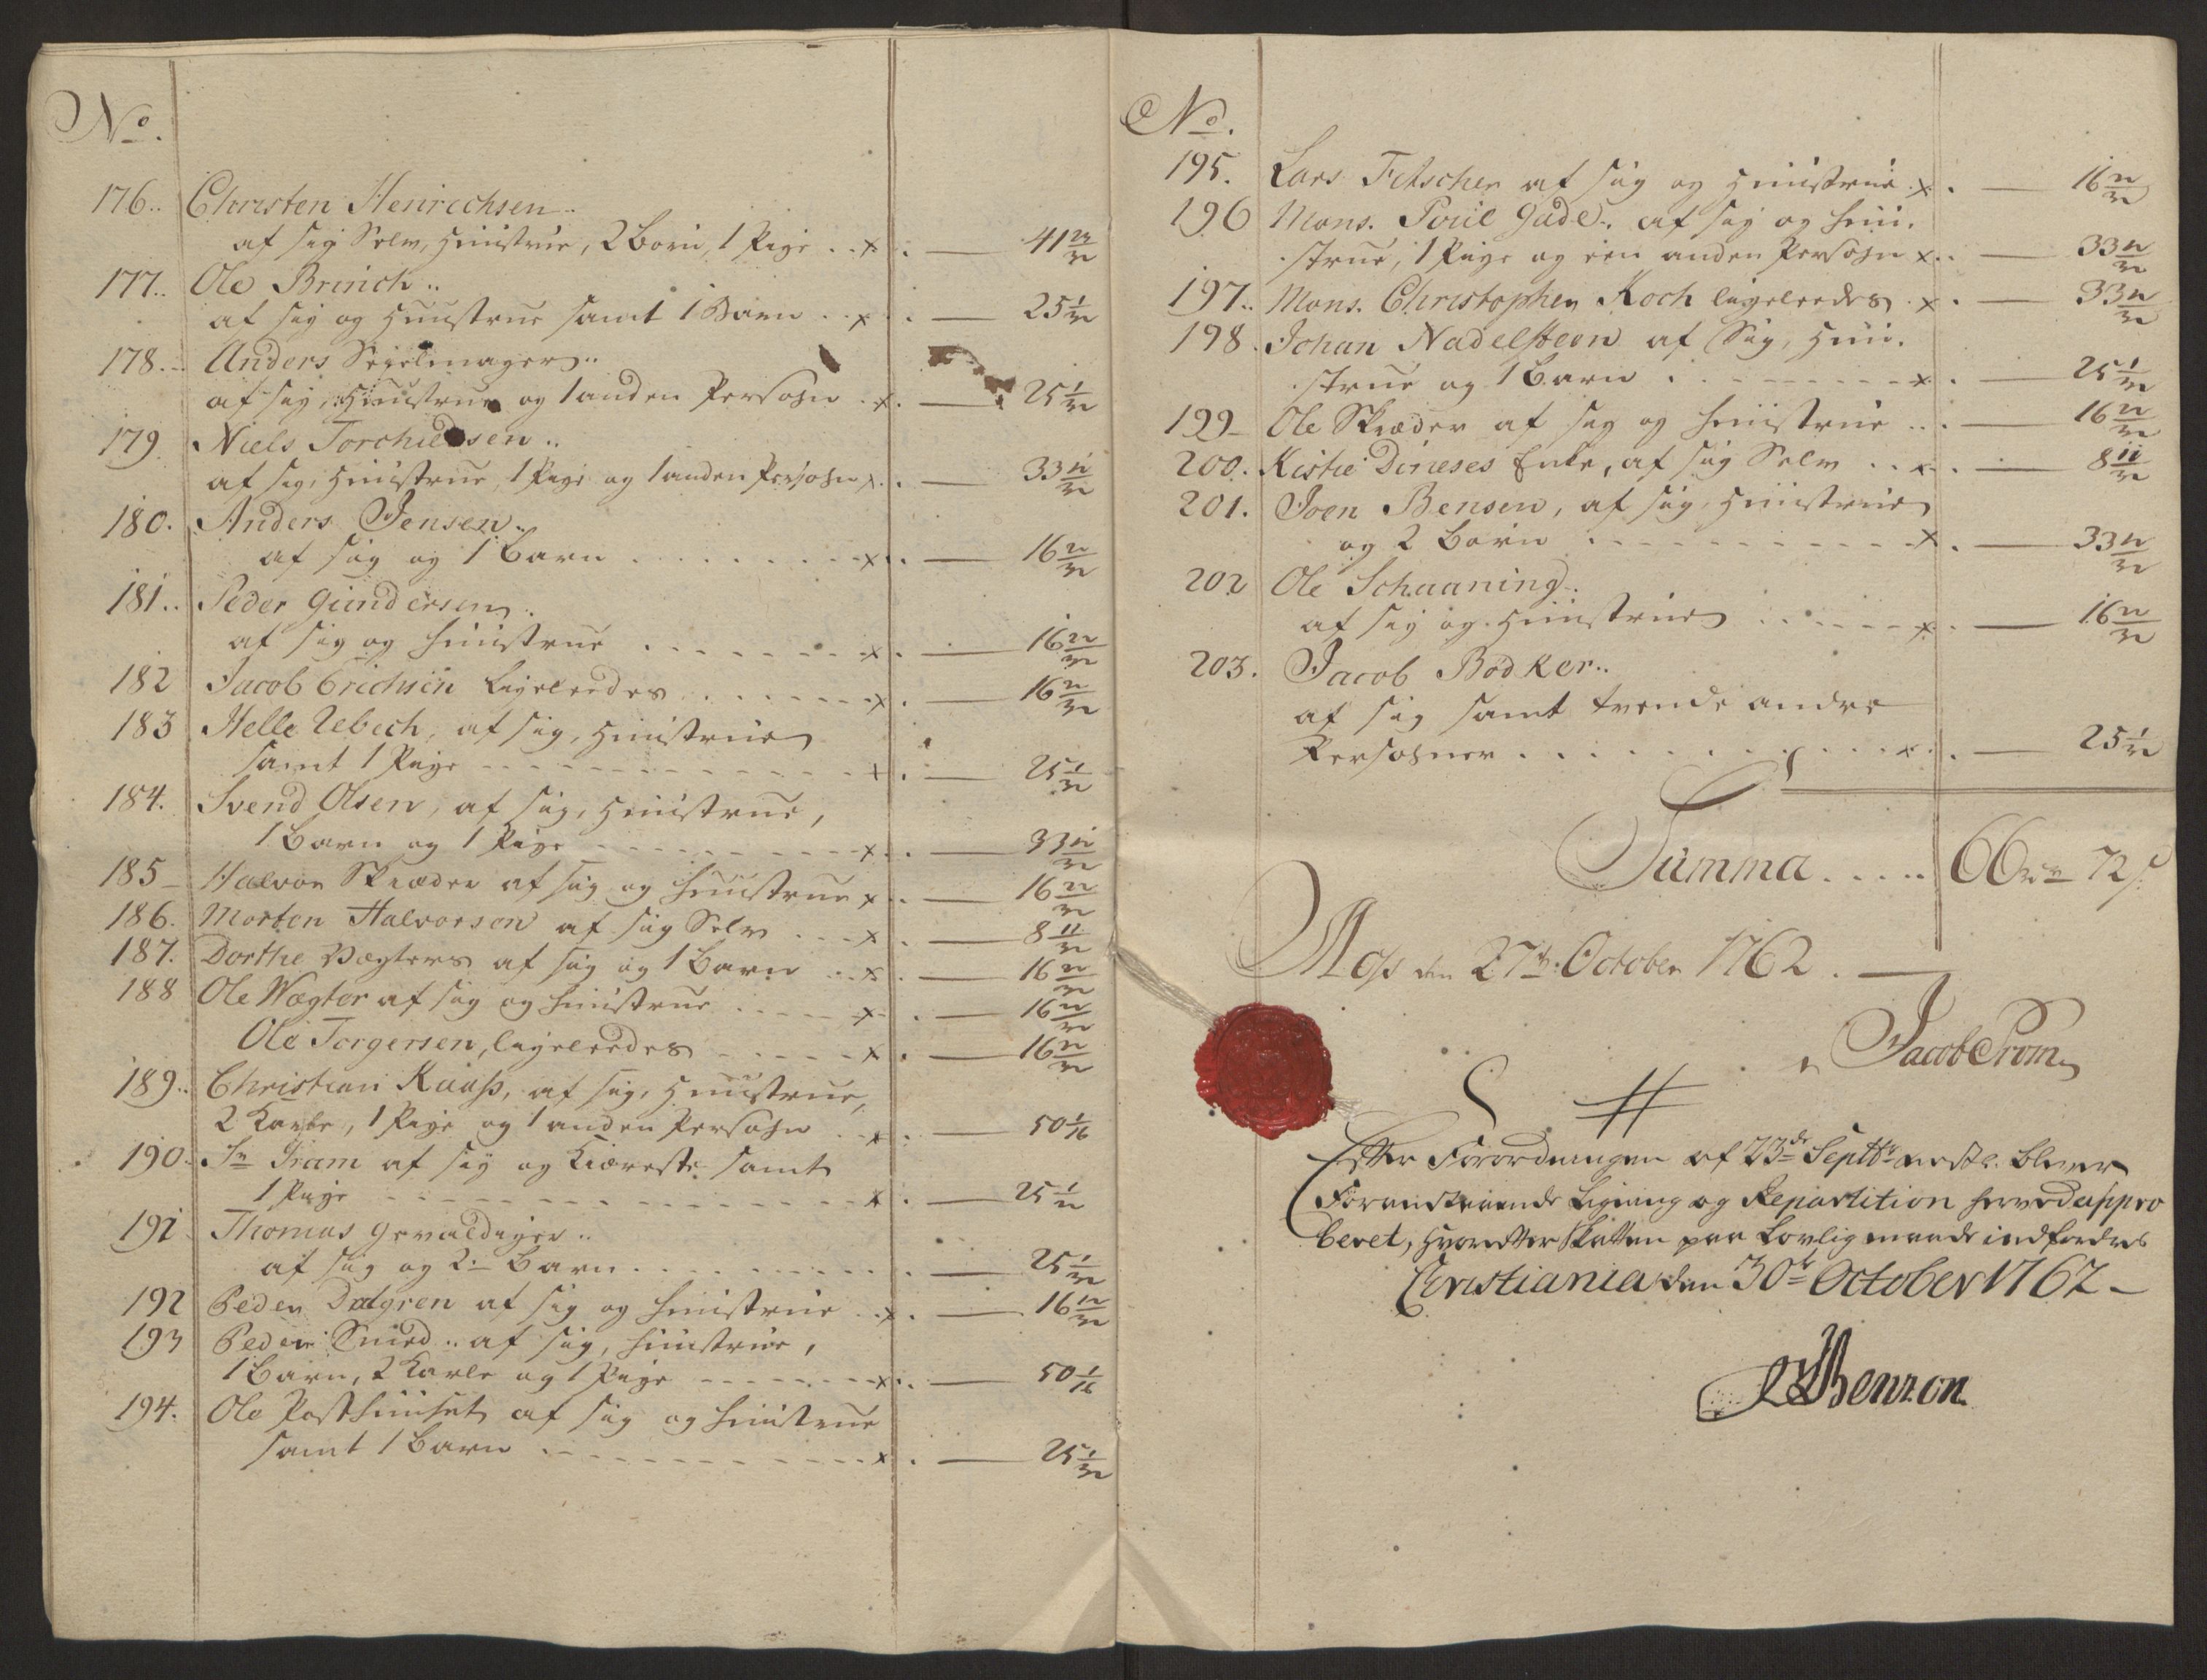 No.
176.. Christen Henrichsen..
af sig Selv, Huustrue, 2 Børn, 1 Pige . . x . — 41 23/32
177.. Ole Brinch ..
af sig og Huustrue samt 1 Barn . . x . — 25 1/32
178.- Anders Seyelmager..
af sig, Huustrue og 1 anden Persohn . x . — 25 1/32
179. Niels Torchildsen ..
af sig, Huustrue, 1 Pige og 1 anden Persohn x . — 33 12/32
180. Anders Jensen..
af sig og 1 Barn . . . . . . . x . — 16 22/32
181.. Peder Gundersen.
af sig og Huustrue . . . . . . . x . — 16 22/32
182 Jacob Erichsen ligeleedes . . . . . . x . — 16 22/32
183 Helle Uebech, af sig, Huustrue
samt 1 Pige - - - - - - - - - x . — 25 1/32
184. Svend Olsen, af sig, Huustrue,
1 Barn og 1 Pige - - - - - - - - x . — 33 12/32
185 - Halvor Skræder af sig og Huustrue x . — 16 22/32
186. Morten Halvorsen af sig Selv . . . x . — 8 11/32
187. Dorthe Vægters af sig og 1 Barn . . x . — 16 22/32
188 Ole Wægter af sig og Huustrue - - - - x . — 16 22/32
Ole Torgersen, ligeleedes - - - - - x . — 16 22/32
189.. Christian Kauss, af sig, Huustrue,
2 Karle, 1 Pige og 1 anden Persohn . . x . — 50 1/16
190. Sr Fram af sig og Kiæreste samt
1 Pige - - - - - - - - - - x . — 25 1/32
191 Thomas Gevaldiger ..
af sig og 2de Barn . . . . . . . . . — 25 1/32
192 Peder Dalgren af sig og Huustrue . . x . — 16 22/32
193 Peder Smed .. af sig, Huustrue,
1 Barn, 2 Karle og 1 Pige - - - - - - x . — 50 1/16
194. Ole Posthuuset af sig og Huustrue
samt 1 Barn . - - - - - - - - - x . — 25 1/32
No.
195. Lars Fetscher af sig og Huustrue . x . — 16 22/32
196 Mons. Poul Gade.. af sig og Huu-
strue, 1 Pige og een anden Persohn x . . — 33 12/32
197.. Mons. Christopher Koch ligeleedes . x . — 33 12/32
198. Johan Nadelsteen af Sig, Huu-
strue og 1 Barn . - - - - - - - x . — 25 1/32
199 - Ole Skræder af sig og Huustrue . . . — 16 22/32
200. Kistie Dineses Enke, af sig Selv . . x . — 8 11/32
201. Joen Bensen, af sig, Huustrue
og 2 Børn . - - - - - - - - - x . — 33 12/32
202 Ole Schaaning.
af sig og Huustrue . . . . . . x . — 16 22/32
203. Jacob Bødker..
af sig samt trende andre
Persohner . . . . . . . . . . x . — 25 1/32
Summa . . . . . 66 rdr 72 s
Moss den 27de October 1762. —
Jacob Crom
Efter Forordningen af 23de Septbr næstl. bliver
Foranstaaende Ligning og Repartition herved appro
beret, hvorefter Skatten paa Lovlig maade indfordres
Christiania den 30te October 1762 -
Benzon